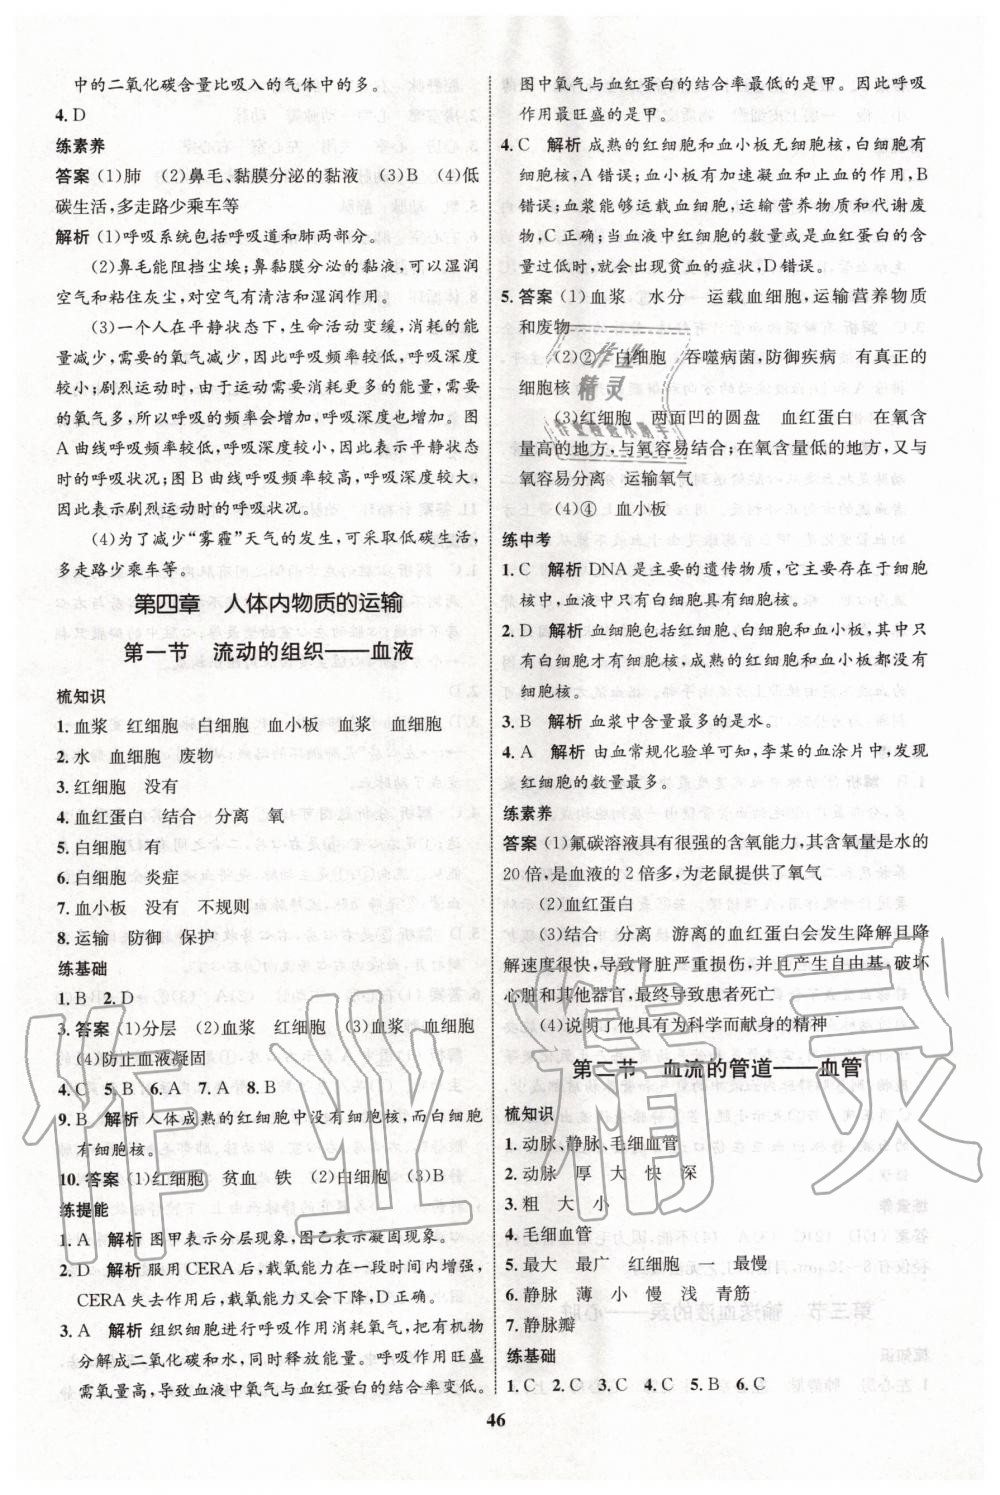 中的二氧化碳含量比吸入的气体中的多。
4. D
练素养
答案 (1)肺 (2)鼻毛、黏膜分泌的黏液 (3)B (4)低
碳生活,多走路少乘车等
解析 (1)呼吸系统包括呼吸道和肺两部分。
(2)鼻毛能阻挡尘埃;鼻黏膜分泌的黏液,可以湿润
空气和粘住灰尘,对空气有清洁和湿润作用。
(3)一个人在平静状态下,生命活动变缓,消耗的能
量减少,需要的氧气减少,因此呼吸频率较低,呼吸深度
较小;剧烈运动时,由于运动需要消耗更多的能量,需要
的氧气多,所以呼吸的频率会增加,呼吸深度也增加。图
A曲线呼吸频率较低,呼吸深度较小,因此表示平静状态
时的呼吸状况;图B曲线呼吸频率较高,呼吸深度较大,
因此表示剧烈运动时的呼吸状况。
(4)为了减少“雾霾”天气的发生,可采取低碳生活,
多走路少乘车等。
第四章 人体内物质的运输
第一节 流动的组织——血液
梳知识
1. 血浆 红细胞 白细胞 血小板 血浆 血细胞
2. 水 血细胞 废物
3. 红细胞 没有
4. 血红蛋白 结合 分离 氧
5. 白细胞 有
6. 白细胞 炎症
7. 血小板 没有 不规则
8. 运输 防御 保护
练基础
1. B 2. D
3. 答案 (1)分层 (2)血浆 红细胞 (3)血浆 血细胞
(4)防止血液凝固
4. C 5. B 6. A 7. A 8. B
9. B 解析 人体成熟的红细胞中没有细胞核,而白细胞
有细胞核。
10. 答案 (1)红细胞 贫血 铁 (2)白细胞 (3)B
练提能
1. A 解析 图甲表示分层现象,图乙表示凝固现象。
2. D 解析 服用CERA后,载氧能力在一段时间内增强。
CERA失去作用后,载氧能力又会下降,D正确。
3. A 解析 组织细胞进行呼吸作用消耗氧气,把有机物
分解成二氧化碳和水,同时释放能量。呼吸作用旺盛
需氧量高,导致血液中氧气与血红蛋白的结合率变低。
图中氧气与血红蛋白的结合率最低的是甲。因此呼吸
作用最旺盛的是甲。
4. C 解析 成熟的红细胞和血小板无细胞核,白细胞有
细胞核,A错误;血小板有加速凝血和止血的作用,B
错误;血浆能够运载血细胞,运输营养物质和代谢废
物,C正确;当血液中红细胞的数量或是血红蛋白的含
量过低时,就会出现贫血的症状,D错误。
5. 答案 (1)血浆 水分 运载血细胞,运输营养物质
和废物
(2)② 白细胞 吞噬病菌,防御疾病 有真正的
细胞核
(3)红细胞 两面凹的圆盘 血红蛋白 在氧含
量高的地方,与氧容易结合;在氧含量低的地方,又与
氧容易分离 运输氧气
(4)④ 血小板
练中考
1. C 解析 DNA是主要的遗传物质,它主要存在于细胞
核中,血液中只有白细胞具有细胞核。
2. D 解析 血细胞包括红细胞、白细胞和血小板,其中只
有白细胞才有细胞核,成熟的红细胞和血小板都没有
细胞核。
3. B 解析 血浆中含量最多的是水。
4. A 解析 由血常规化验单可知,李某的血涂片中,发现
红细胞的数量最多。
练素养
答案 (1)氟碳溶液具有很强的含氧能力,其含氧量是水的
20倍,是血液的2倍多,为老鼠提供了氧气
(2)血红蛋白
(3)结合 分离 游离的血红蛋白会发生降解且降
解速度很快,导致肾脏严重损伤,并且产生自由基,破坏
心脏和其他器官,最终导致患者死亡
(4)说明了他具有为科学而献身的精神
第二节 血流的管道——血管
梳知识
1. 动脉、静脉、毛细血管
2. 动脉 厚 大 快 深
3. 粗 大 小
4. 毛细血管
5. 最大 最广 红细胞 一 最慢
6. 静脉 薄 小 慢 浅 青筋
7. 静脉瓣
练基础
1. C 2. C 3. C 4. C 5. B 6. C
46
作业精灵
作业
精灵